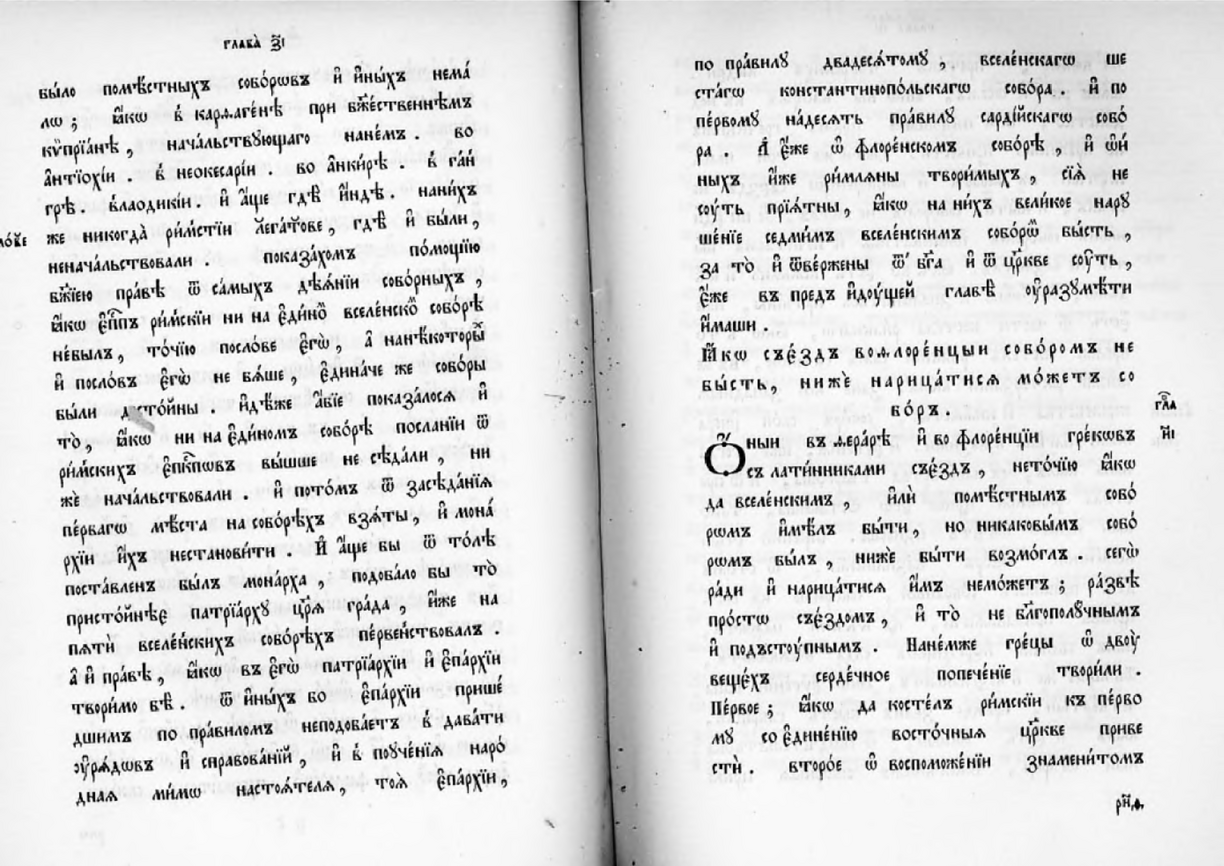 глава̀ з҃і
бы́ло помѣ́стныхъ собо́рѡвъ и҆ и҆ны́хъ нема́
лѡ ; ꙗ҆́кѡ в̾ карѳаге́нѣ при бж҃е́ственнѣмъ
кѷпрїа́нѣ , нача́льствующаго нане́мъ . во
а҆нтїо́хїи . в̾ неокеса́рїи . во а҆нки́рѣ . в̾ га́н
грѣ . вл̾аодикі́и . и҆ а҆́ще гдѣ̀ и҆́ндѣ . нани́хъ
же никогда̀ ри́мстїи лега́тове , гдѣ̀ и҆ бы́ли ,
ненача́льствовали . показа́хомъ по́мощїю
бж҃їею пра́вѣ ѿ са́мыхъ дѣѧ́нїи собо́рныхъ ,
ꙗ҆́кѡ є҆пⷭ҇пъ ри́мскїи ни на є҆ди́но вселе́нско собо́рѣ
не́былъ , то́чїю посло́ве є҆гѡ̀ , а҆ нанѣ́которы
и҆ посло́въ є҆гѡ̀ не бѧ́ше , є҆дина́че же собо́ры
бы́ли досто́йны . и҆дѣ́же а҆́бїе показа́лосѧ и҆
то̀ , ꙗ҆́кѡ ни на є҆ди́номъ собо́рѣ посла́нїи ѿ
ри́мскихъ є҆пкⷭ҇пѡвъ вы́шше не сѣда́ли , ни
жѐ нача́льствовали . и҆ пото́мъ ѿ засѣда́нїѧ
пе́рвагѡ мѣ́ста на собо́рѣхъ взѧ́ты , и҆ мона́
рхїи и҆́хъ нестанови́ти . и҆ а҆́ще бы ѿ то́лѣ
поста́вленъ бы́лъ мона́рха , подоба́ло бы то̀
присто́йнѣе патрїа́рху цр҃ѧ̀ гра́да , и҆́же на
пѧтѝ вселе́нскихъ собо́рѣхъ пе́рве́нствовалъ .
а҆ и҆ пра́вѣ , ꙗ҆́кѡ въ є҆гѡ̀ патрїа́рхїи и҆ є҆па́рхїи
твори́мо бѣ̀ . ѿ и҆ны́хъ во є҆па́рхїи прише́
дшимъ по пра́виломъ неподоба́етъ в̾ дава́ти
ѹ҆рѧ́дѡвъ и҆ справова́нїй , и҆ в̾ поуче́нїѧ наро́
днаѧ ми́мѡ настоѧ́телѧ , тоѧ̀ є҆па́рхїи ,
по пра́вилу двадесѧ́тому , вселе́нскагѡ ше
ста́гѡ константинопо́льскагѡ собо́ра . и҆ по
пе́рвому на́десѧть пра́вилу сарді́йскагѡ собо́
ра . а҆ є҆́же ѡ҆ флоре́нскомъ собо́рѣ , и҆ ѡ҆и
ны́хъ и҆́же ри́млѧны твори́мыхъ , сїѧ̀ не
сѹ́ть прїѧ́тны , ꙗ҆́кѡ на ни́хъ вели́кое нару
ше́нїе седми́мъ вселе́нскимъ собо́рѡ бы́сть ,
за то̀ и҆ ѿве́ржены ѿ бг҃а и҆ ѿ цр҃кве сѹ́ть ,
є҆́же въ предъ и҆дѹ́щей главѣ̀ ѹ҆разумѣ́ти
и҆́маши .
ꙗ҆́кѡ съѣ́здъ воѳлоре́нцыи собо́ромъ не
бы́сть, нижѐ нарица́тисѧ мо́жетъ со
бо́ръ .
гл҃а
и҃і
Ѻ҆́ныи въ ѳера́рѣ и҆ во флоре́нцїи гре́ковъ
съ лати́нниками съѣ́здъ , нето́чїю ꙗ҆́кѡ
да вселе́нскимъ , и҆лѝ помѣ́стнымъ собо́
ромъ и҆мѣ́лъ бы́ти , но никаковы́мъ собо́
ромъ бы́лъ , нижѐ бы́ти возмо́глъ . сегѡ̀
ра́ди и҆ нарица́тисѧ и҆́мъ немо́жетъ ; ра́звѣ
про́стѡ съѣ́здомъ , и҆ то̀ не бл҃гополу́чнымъ
и҆ подъстѹ́пнымъ . Нане́мже гре́цы ѿ двоу
веще́хъ серде́чное попече́нїе твори́ли .
Пе́рвое ; ꙗ҆́кѡ да косте́лъ ри́мскїи къ пе́рво
му со є҆дине́нїю восто́чныѧ цр҃кве приве
стѝ . второ́е ѡ҆ воспоможе́нїи знамени́томъ